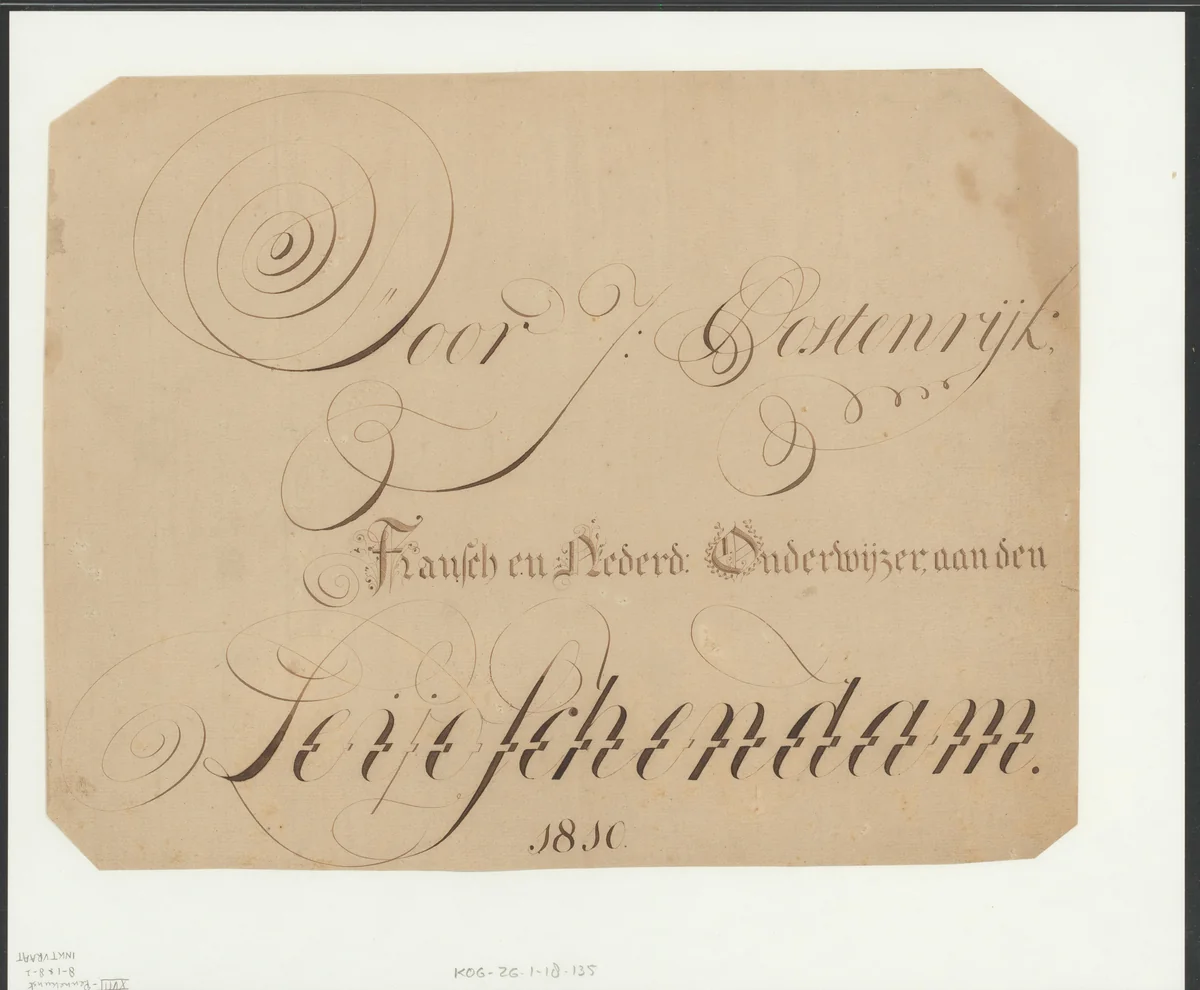 Door J: Oostenrijk,
Fransch en Nederd: Onderwijzer, aan den
Leijdschendam.
1810.
KOG-ZG-1-18-135
XVII-Penneкunst
8-1 & 8-2
INKTVRAAT